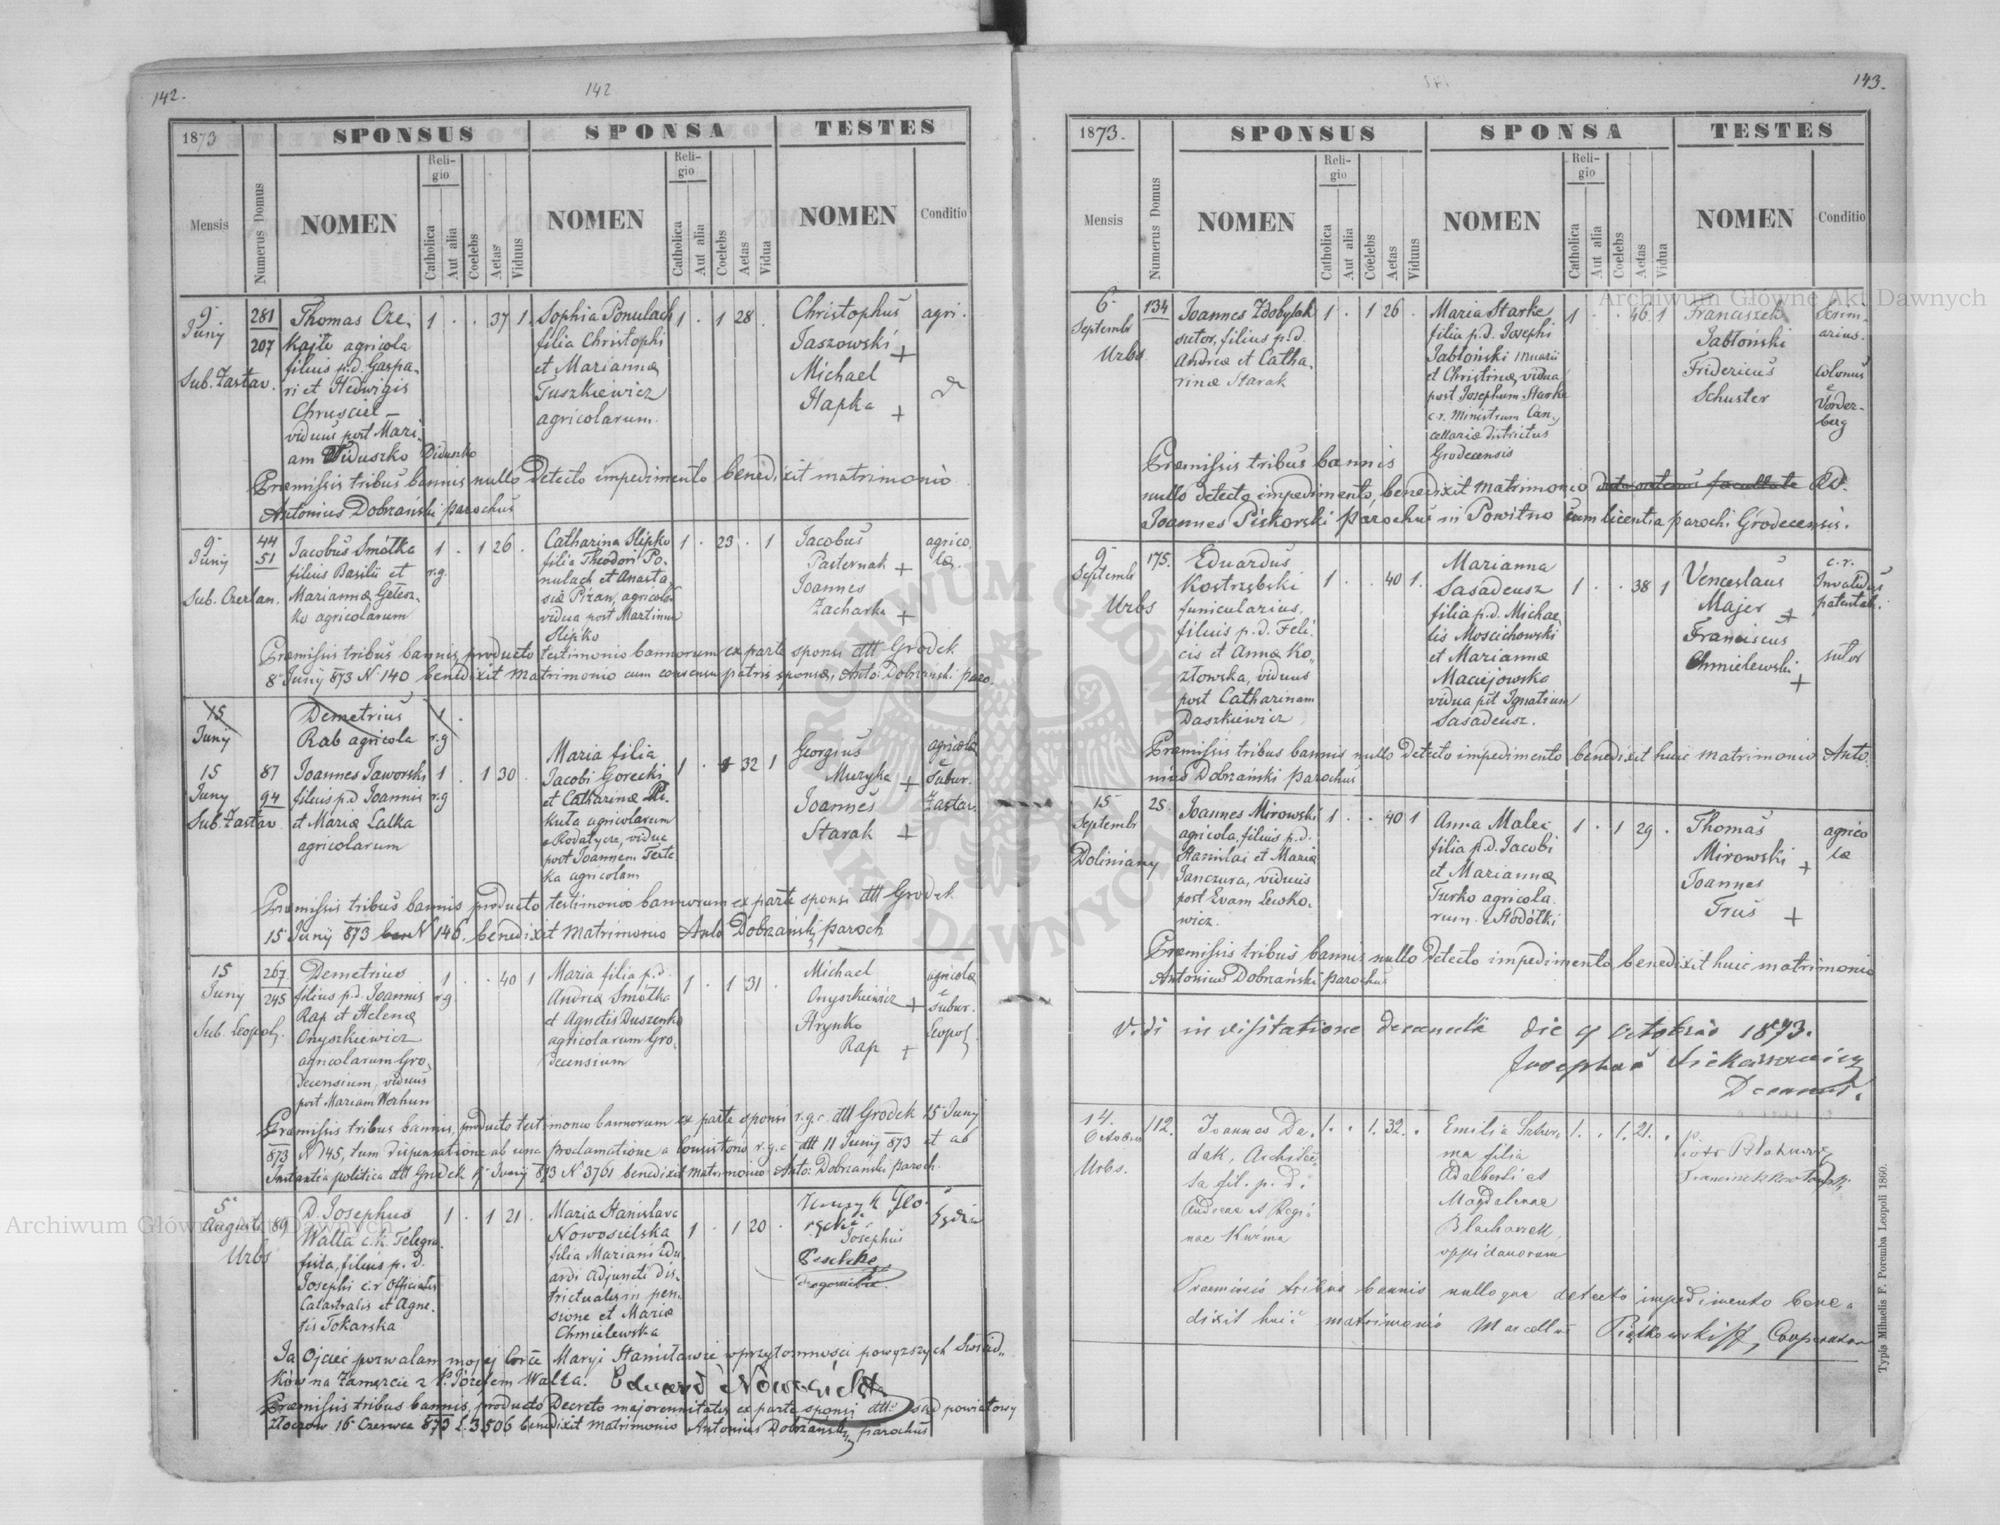 142.
142
1873
SPONSUS
SPONSA
TESTES
Mensis
Numerus Domus
NOMEN
Religio
Catholica
Aut alia
Coelebs
Aetas
Viduus
NOMEN
Religio
Catholica
Aut alia
Coelebs
Aetas
Vidua
NOMEN
Conditio
9
Juny
Sub. Zastav.
281
207
Thomas Cze-
kajło agricola
filius p.d. Gaspa-
ri et Hedwigis
Chrusciel -
viduus post Mari-
am Diduszko
1 . . 37 1.
Sophia Ponulach
filia Christophi
et Marianna
Tuszkiewicz
agricolarum.
1 . 1 28 .
Christophus
Jaszowski +
Michael
Hapka +
agri.
Præmissis tribus bannis nullo detecto impedimento benedixit matrimonio
Antonius Dobrzański parochus
9
Juny
Sub. Czerlan.
44
51
Jacobus Smółka
filius Basilii et
Mariannæ
agricolarum
1 . 1 26 .
r.g.
Catharina Slipko
filia Theodori Po-
nulach et Anasta-
siæ Pizan, agricolar
vidua post Martinum
Slipko
1 . 23 . 1
Jacobus
Pasternak +
Joannes
Zacharko +
agrico-
læ
Præmissis tribus bannis, producto testimonio bannorum ex parte sponsi dtt Grodek
8 Juny 873 N 140 benedixit matrimonio cum consensu patris sponsæ, Anto: Dobrzanski paro.
15
Juny
Demetrius
Rab agricola
1 .
r.g
15
Juny
Sub. Zastav
87
94
Joannes Jaworski
filius p.d Joannis
et Mariæ Lalka
agricolarum
1 . 1 30 .
r.g
Maria filia
Jacobi Gorecki
et Catharinæ Pi-
kuta agricolarum
e Rodatycze, vidua
post Joannem
agricolam
1 . 32 1
Georgius
Muzyka +
Joannes
Starak +
agricolæ
e subur.
Zastav.
Præmissis tribus bannis producto testimonio bannorum ex parte sponsi dtt Grodek
15 Juny 873 N 146. benedixit matrimonio Anto Dobrzański paroch
15
Juny
Sub. Leopol.
267
245
Demetrius
filius p.d. Joannis
Rap et Helenæ
Onyszkiewicz
agricolarum Gro-
decensium, viduus
post Mariam Werhun
1 . . 40 1
r.g
Maria filia p.d.
Andreæ Smółka
et Agnetis Duszenko
agricolarum Gro-
decensium
1 . 1 31 .
Michael
Onyszkiewicz +
Hrynko
Rap +
agricolæ
e subur.
Leopol.
Præmissis tribus bannis, producto testimonio bannorum ex parte sponsi r.g.c. dtt Grodek 15 Juny
873 N 145, tum dispensatione ab una proclamatione a Consistorio r.g.c dtt 11 Juny 873 et ab
Instantia politica dtt Grodek 15 Juny 873 N 3761 benedixit matrimonio Anto: Dobrzanski paroch.
5
Augusti
Urbs
89
D. Josephus
Walla c.k. Telegra-
fista, filius p.d.
Josephi c.r Officialis
Catastralis et Agne-
tis Tokarska
1 . 1 21 .
Maria Stanislava
Nowosielska
filia Mariani Edu-
ardi Adjuncti dis-
trictualis in pen-
sione et Mariæ
Chmielewska
1 . 1 20 .
Josephus
Sędzia
Ja Ojciec pozwalam mojej Córce Maryi Stanisławie w przytomności powyższych świad-
ków na zamęzcie z P. Józefem Walla. Eduard Nowosielski
Præmissis tribus bannis, producto Decreto majorennitatis ex parte sponsi dtto sąd powiatowy
Złoczow 16 Czerwca 873 L. 3506 benedixit matrimonio Antonius Dobrzański parochus
143.
1873.
SPONSUS
SPONSA
TESTES
Mensis
Numerus Domus
NOMEN
Religio
Catholica
Aut alia
Coelebs
Aetas
Viduus
NOMEN
Religio
Catholica
Aut alia
Coelebs
Aetas
Vidua
NOMEN
Conditio
6
Septembr
Urbs
134
Joannes Zdobylak
sutor, filius p.d.
Andreæ et Catha-
rinæ Starak
1 . 1 26 .
Maria Starke
filia p.d. Josephi
Jabłoński
et Christinæ, vidua
post Josephum Starke
c.r. Ministrum Can-
cellariæ districtus
Grodecensis
1 . . 46 1
Franciszek
Jabłoński
Fridericus
Schuster
colonus
e
Vorder-
berg
Præmissis tribus bannis
nullo detecto impedimento, benedixit matrimonio AD.
Joannes Piskorski parochus in Powitno cum licentia parochi Grodecensis.
9
Septembr
Urbs
175.
Eduardus
Kostrzębski
funicularius,
filius p.d. Feli-
cis et Annæ Ko-
złowska, viduus
post Catharinam
Daszkiewicz
1 . . 40 1.
Marianna
Sasadeusz
filia p.d. Michae-
lis Moscichowski
et Mariannæ
Maciejowska
vidua pst Ignatium
Sasadeusz.
1 . . 38 1
Venceslaus
Majer +
Franciscus
Chmielewski +
c.r.
Invalidus
patental.
sutor
Præmissis tribus bannis nullo detecto impedimento benedixit huic matrimonio Anto-
nius Dobrzański parochus
15
Septembr
Doliniany
25.
Joannes Mirowski
agricola, filius p.d.
Stanislai et Mariæ
Janczura, viduus
post Evam Lewko-
wicz.
1 . . 40 1
Anna Malec
filia p.d. Jacobi
et Mariannæ
Turko agricola-
rum e Stodółki
1 . 1 29 .
Thomas
Mirowski +
Joannes
Trus +
agrico
læ
Præmissis tribus bannis nullo detecto impedimento, benedixit huic matrimonio
Antonius Dobrzański parochus
Vidi in visitatione decanali die 9 octobris 1873.
Josephus
Decanus.
14.
Octobris
Urbs.
112.
Joannes Da-
dak,
fil. p.d.
Andreae et Regi-
nae Kuźma
1. . 1. 32. .
Emilia
filia
Adalberti et
Magdalenae
Blacharzek,
oppidanorum
1. . 1. 21. .
Piotr
Franciszek
Praemissis tribus bannis nulloque detecto impedimento bene-
dixit huic matrimonio Marcellus Piątkowski, Cooperator
Typis Mihaelis F. Poremba Leopoli 1860.
Archiwum Główne Akt Dawnych
Archiwum Główne Akt Dawnych
ARCHIWUM GŁÓWNE AKT DAWNYCH